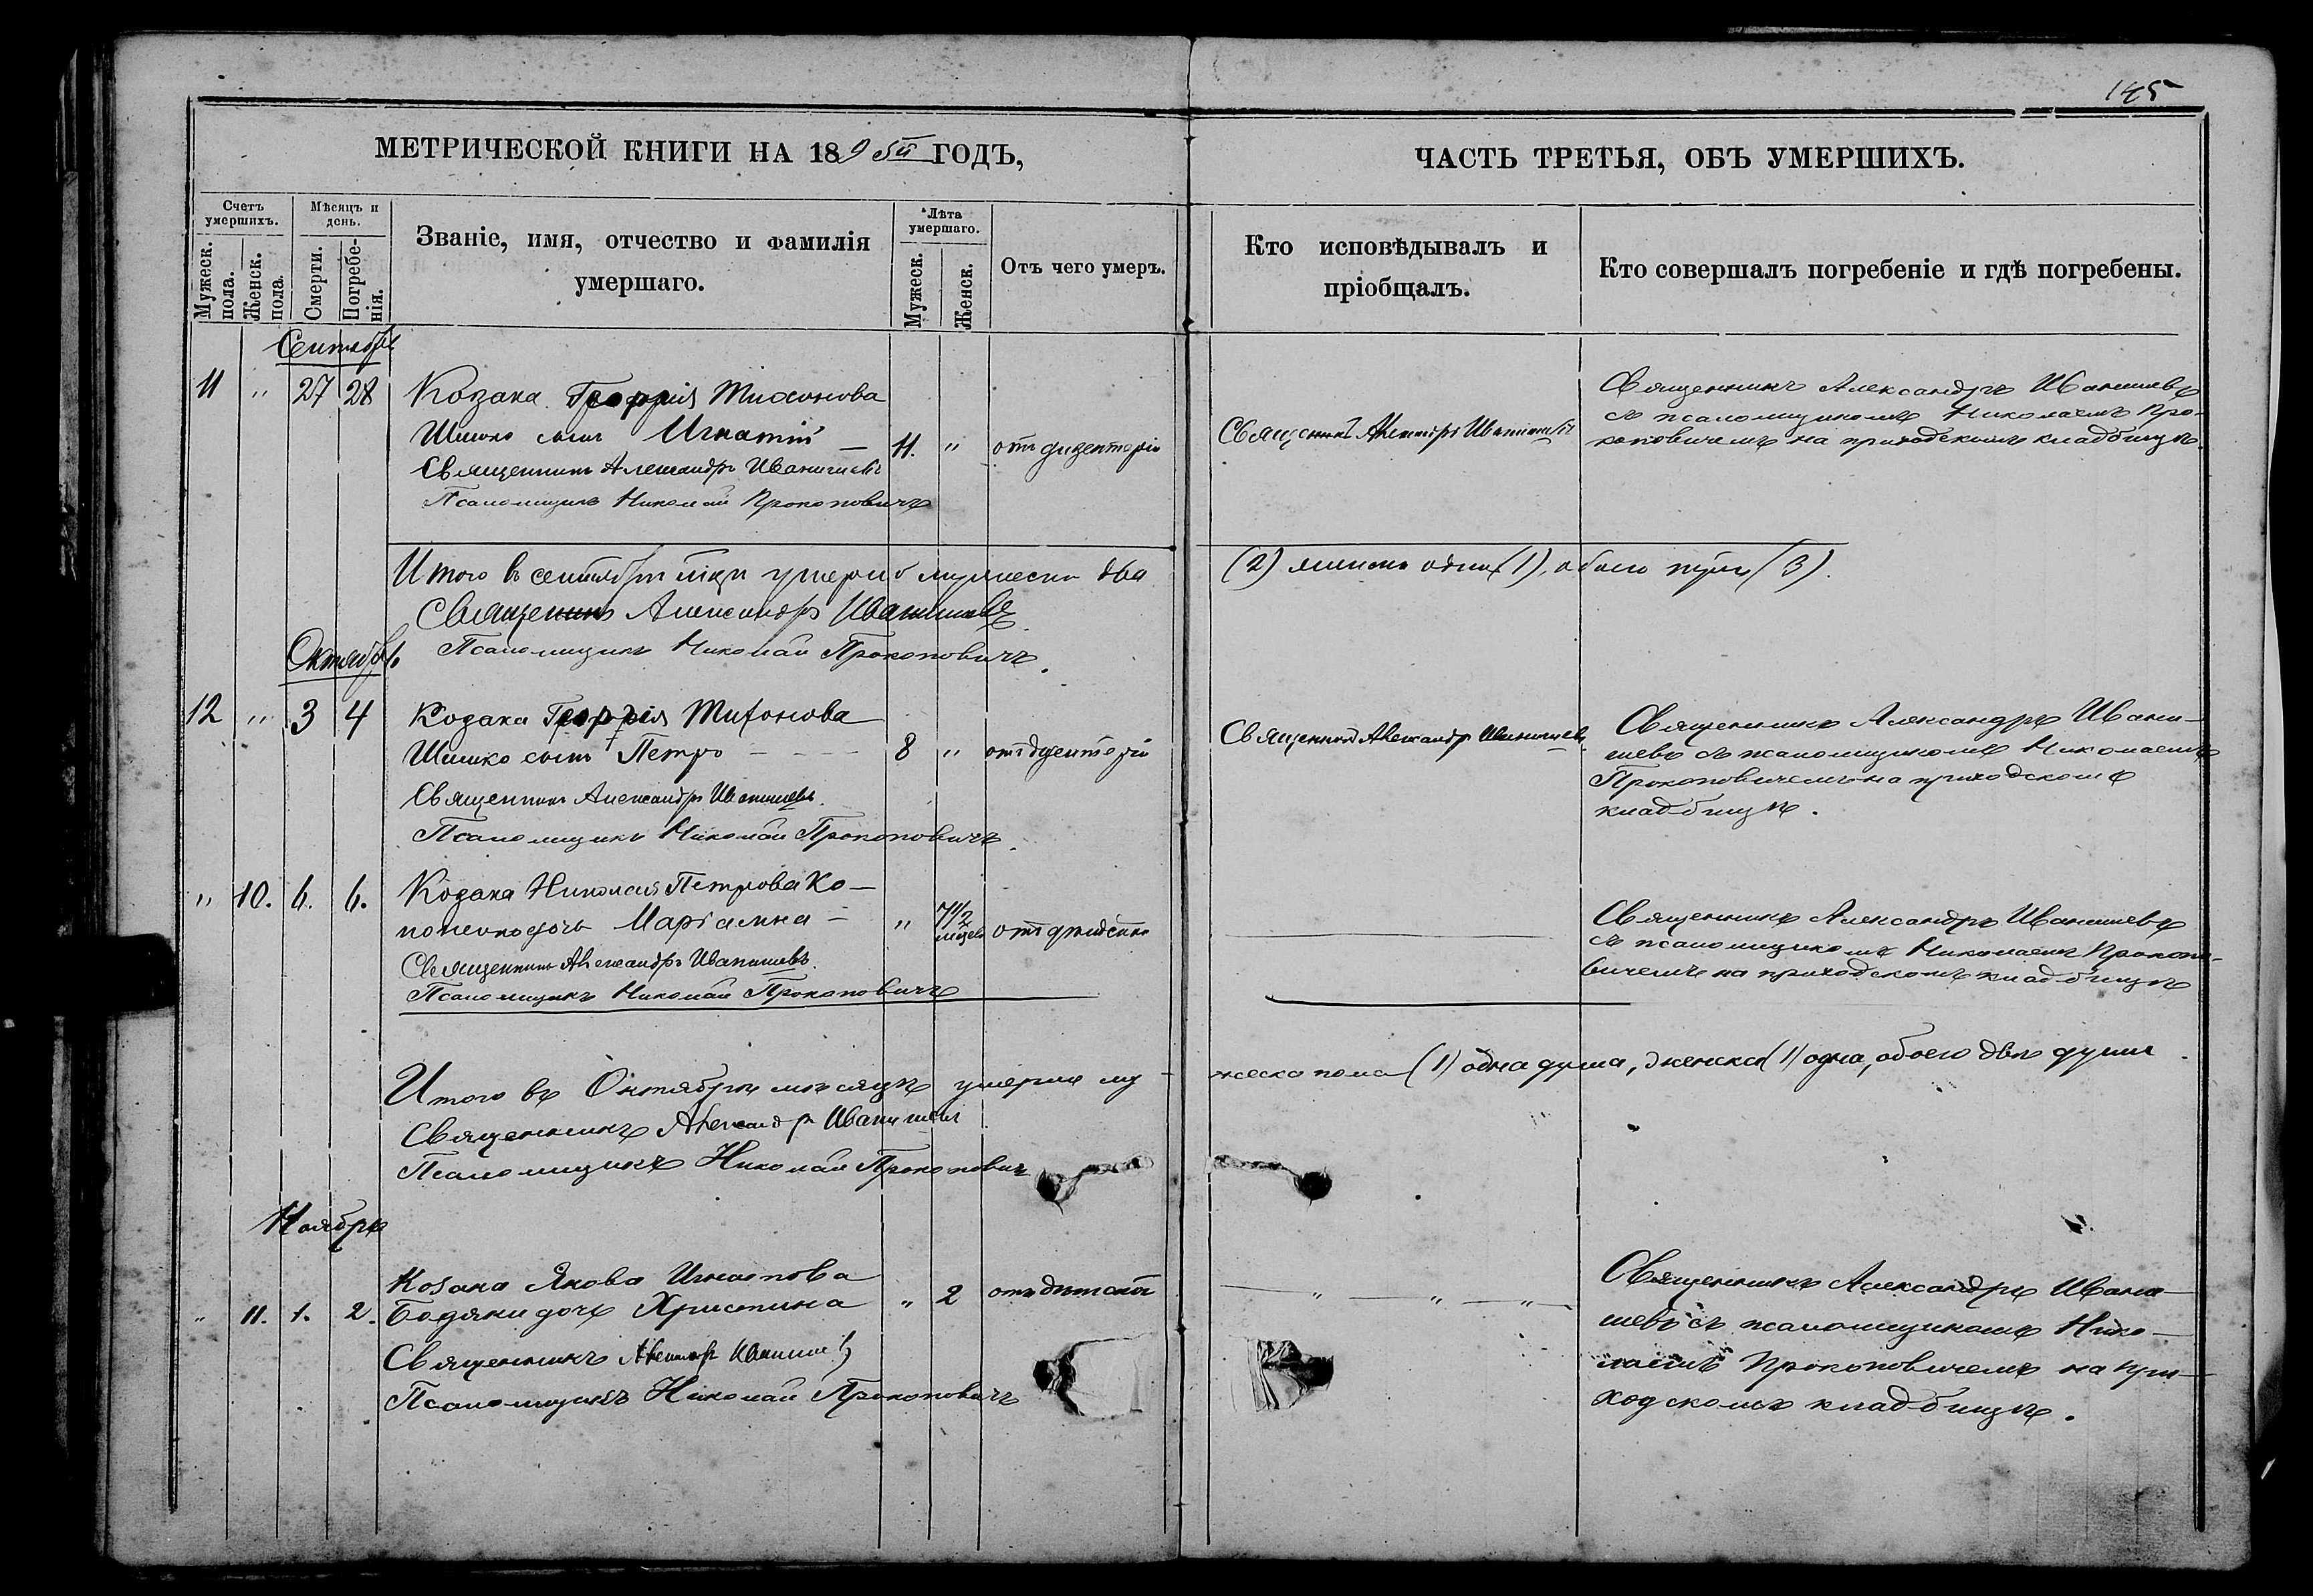 145
МЕТРИЧЕСКОЙ КНИГИ НА 189 5й ГОДЪ,
ЧАСТЬ ТРЕТЬЯ, ОБЪ УМЕРШИХЪ.
Счетъ умершихъ.
Мѣсяцъ и день.
Званіе, имя, отчество и фамилія умершаго.
Лѣта умершаго.
Отъ чего умеръ.
Кто исповѣдывалъ и пріобщалъ.
Кто совершалъ погребеніе и гдѣ погребены.
Мужеск. пола.
Женск. пола.
Смерти.
Погребенія.
Мужеск.
Женск.
Сентябрь
11 " 27 28 Козака Георгія Тихонова
Шишко сынъ Игнатій — 11. " отъ дизентеріи
Священникъ Александръ Иванишевъ
Псаломщикъ Николай Прокоповичъ
Священникъ Александръ Иванишевъ
Священникъ Александръ Иванишевъ
съ псаломщикомъ Николаемъ Про-
коповичемъ на приходскомъ кладбищѣ.
Итого въ сентябрѣ умерло мужеска два
(2) женска одна (1), обоего три (3).
Священникъ Александръ Иванишевъ
Псаломщикъ Николай Прокоповичъ.
Октябрь
12 " 3 4 Козака Георгія Тихонова
Шишко сынъ Петро — 8 " отъ дизентеріи
Священникъ Александръ Иванишевъ.
Псаломщикъ Николай Прокоповичъ.
Священникъ Александръ Иванишевъ
Священникъ Александръ Ивани-
шевъ съ псаломщикомъ Николаемъ
Прокоповичемъ на приходскомъ
кладбищѣ.
" 10. 6. 6. Козака Николая Петрова Ко-
дочь Маріамна — " 7 1/2 отъ
Священникъ Александръ Иванишевъ.
Псаломщикъ Николай Прокоповичъ
Священникъ Александръ Иванишевъ
съ псаломщикомъ Николаемъ Прокопо-
вичемъ на приходскомъ кладбищѣ
Итого въ Октябрѣ мѣсяцѣ умерла му-
жеска пола (1) одна душа, женска (1) одна, обоего двѣ души.
Священникъ Александръ Иванишевъ
Псаломщикъ Николай Прокоповичъ
Ноябрь
" 11. 1. 2. Козака Якова Игнатова
Бодяки дочь Христина " 2
Священникъ Александръ Иванишевъ
Псаломщикъ Николай Прокоповичъ
— " — " — " —
Священникъ Александръ Ивани-
шевъ съ псаломщикомъ Нико-
лаемъ Прокоповичемъ на при-
ходскомъ кладбищѣ.